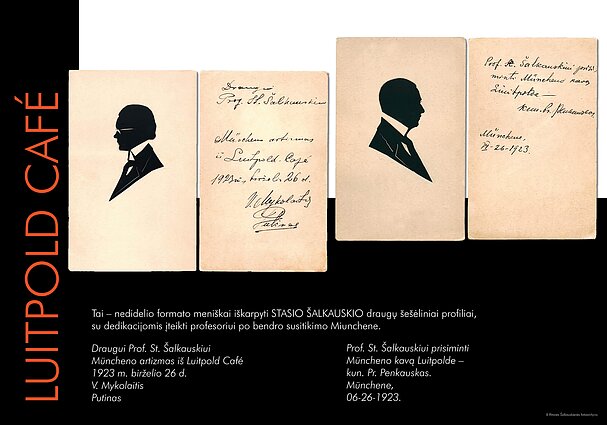 LUITPOLD CAFÉ
Draugui
Prof. St. Šalkauskiui
München artizmas
iš Luitpold Café
1923 m. birželio 26 d.
V. Mykolaitis
Putinas
Prof. St. Šalkauskiui prisi-
minti Müncheno kavą
Luitpolde —
kun. Pr. Penkauskas.
Münchene,
1923.
Tai – nedidelio formato meniškai iškarpyti STASIO ŠALKAUSKIO draugų šešėliniai profiliai,
su dedikacijomis įteikti profesoriui po bendro susitikimo Miunchene.
Draugui Prof. St. Šalkauskiui
Müncheno artizmas iš Luitpold Café
1923 m. birželio 26 d.
V. Mykolaitis
Putinas
Prof. St. Šalkauskiui prisiminti
Müncheno kavą Luitpolde –
kun. Pr. Penkauskas.
Münchene,
06-26-1923.